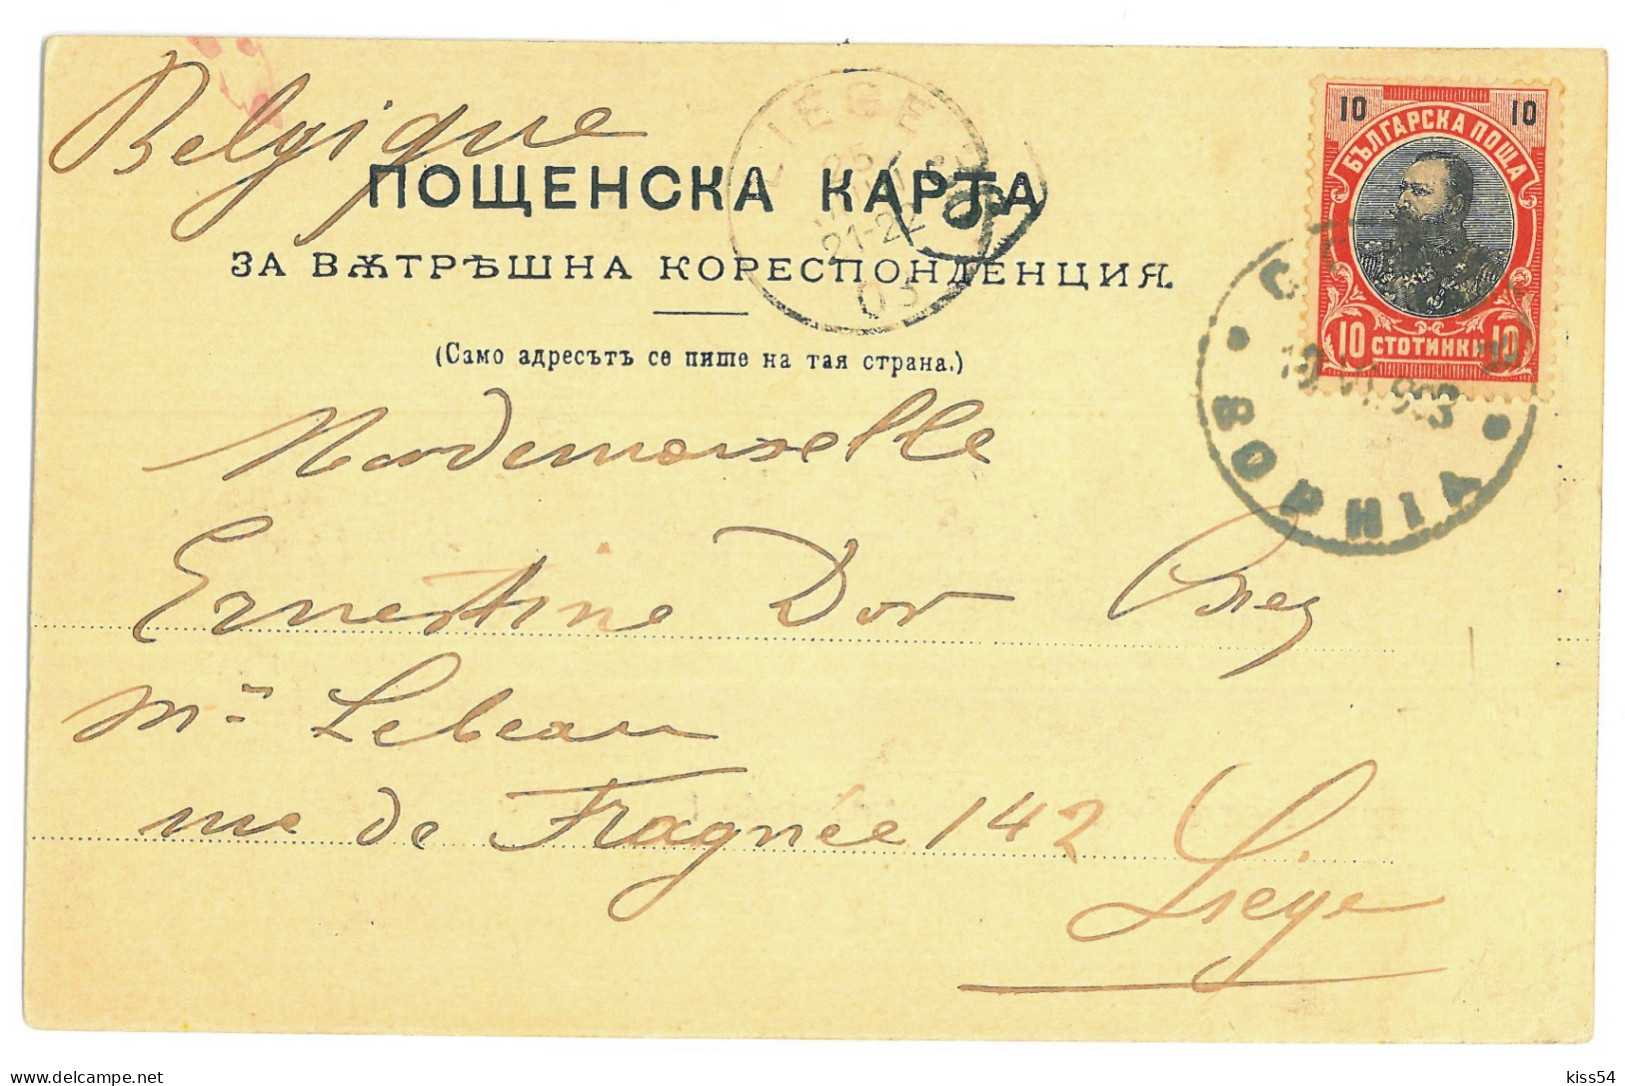 Belgique
ПОЩЕНСКА КАРТА
ЗА ВѪТРѢШНА КОРЕСПОНДЕНЦИЯ.
(Само адресътъ се пише на тая страна.)
LIEGE
25
21-22
03
10 10
БЪЛГАРСКА ПОЩА
10 СТОТИНКИ 10
Mademoiselle
Ernestine Dor Chez
Mr Lebeau
rue de Fragnée 142
Liége
kiss54